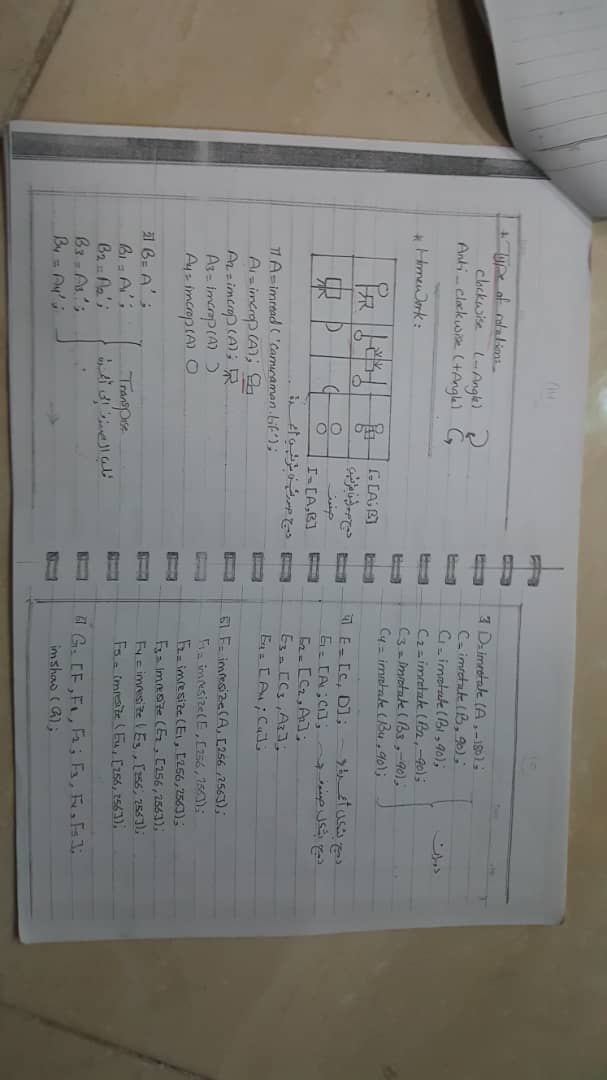 * Type of rotations
clockwise (-Angle)
Anti-clockwise (+Angle)
* Homework:
I=[A;B]
صفوف
I=[A,B]
1) A=imread('camiraman.tif');
A1=imcrop(A);
A2=imcrop(A);
A3=imcrop(A)
A4=imcrop(A)
2) B=A';
B1=A1';
B2=A2';
B3=A3';
B4=A4';
Transpose
قلب الصفوف إلى أعمدة
15
3) D=imrotate(A,-180);
C=imrotate(B,90);
C1=imrotate(B1,90);
C2=imrotate(B2,-90);
C3=imrotate(B3,-90);
C4=imrotate(B4,90);
دوران
4) E=[C,D]; دمج بشكل أعمدة
E1=[A1;C1]; دمج بشكل صفوف
E2=[C2,A2];
E3=[C3,A3];
E4=[A4;C4];
5) F=imresize(A,[256,256]);
F1=imresize(E,[256,256]);
F2=imresize(E1,[256,256]);
F3=imresize(E2,[256,256]);
F4=imresize(E3,[256,256]);
F5=imresize(E4,[256,256]);
6) G=[F,F1,F2;F3,F4,F5];
imshow(G);